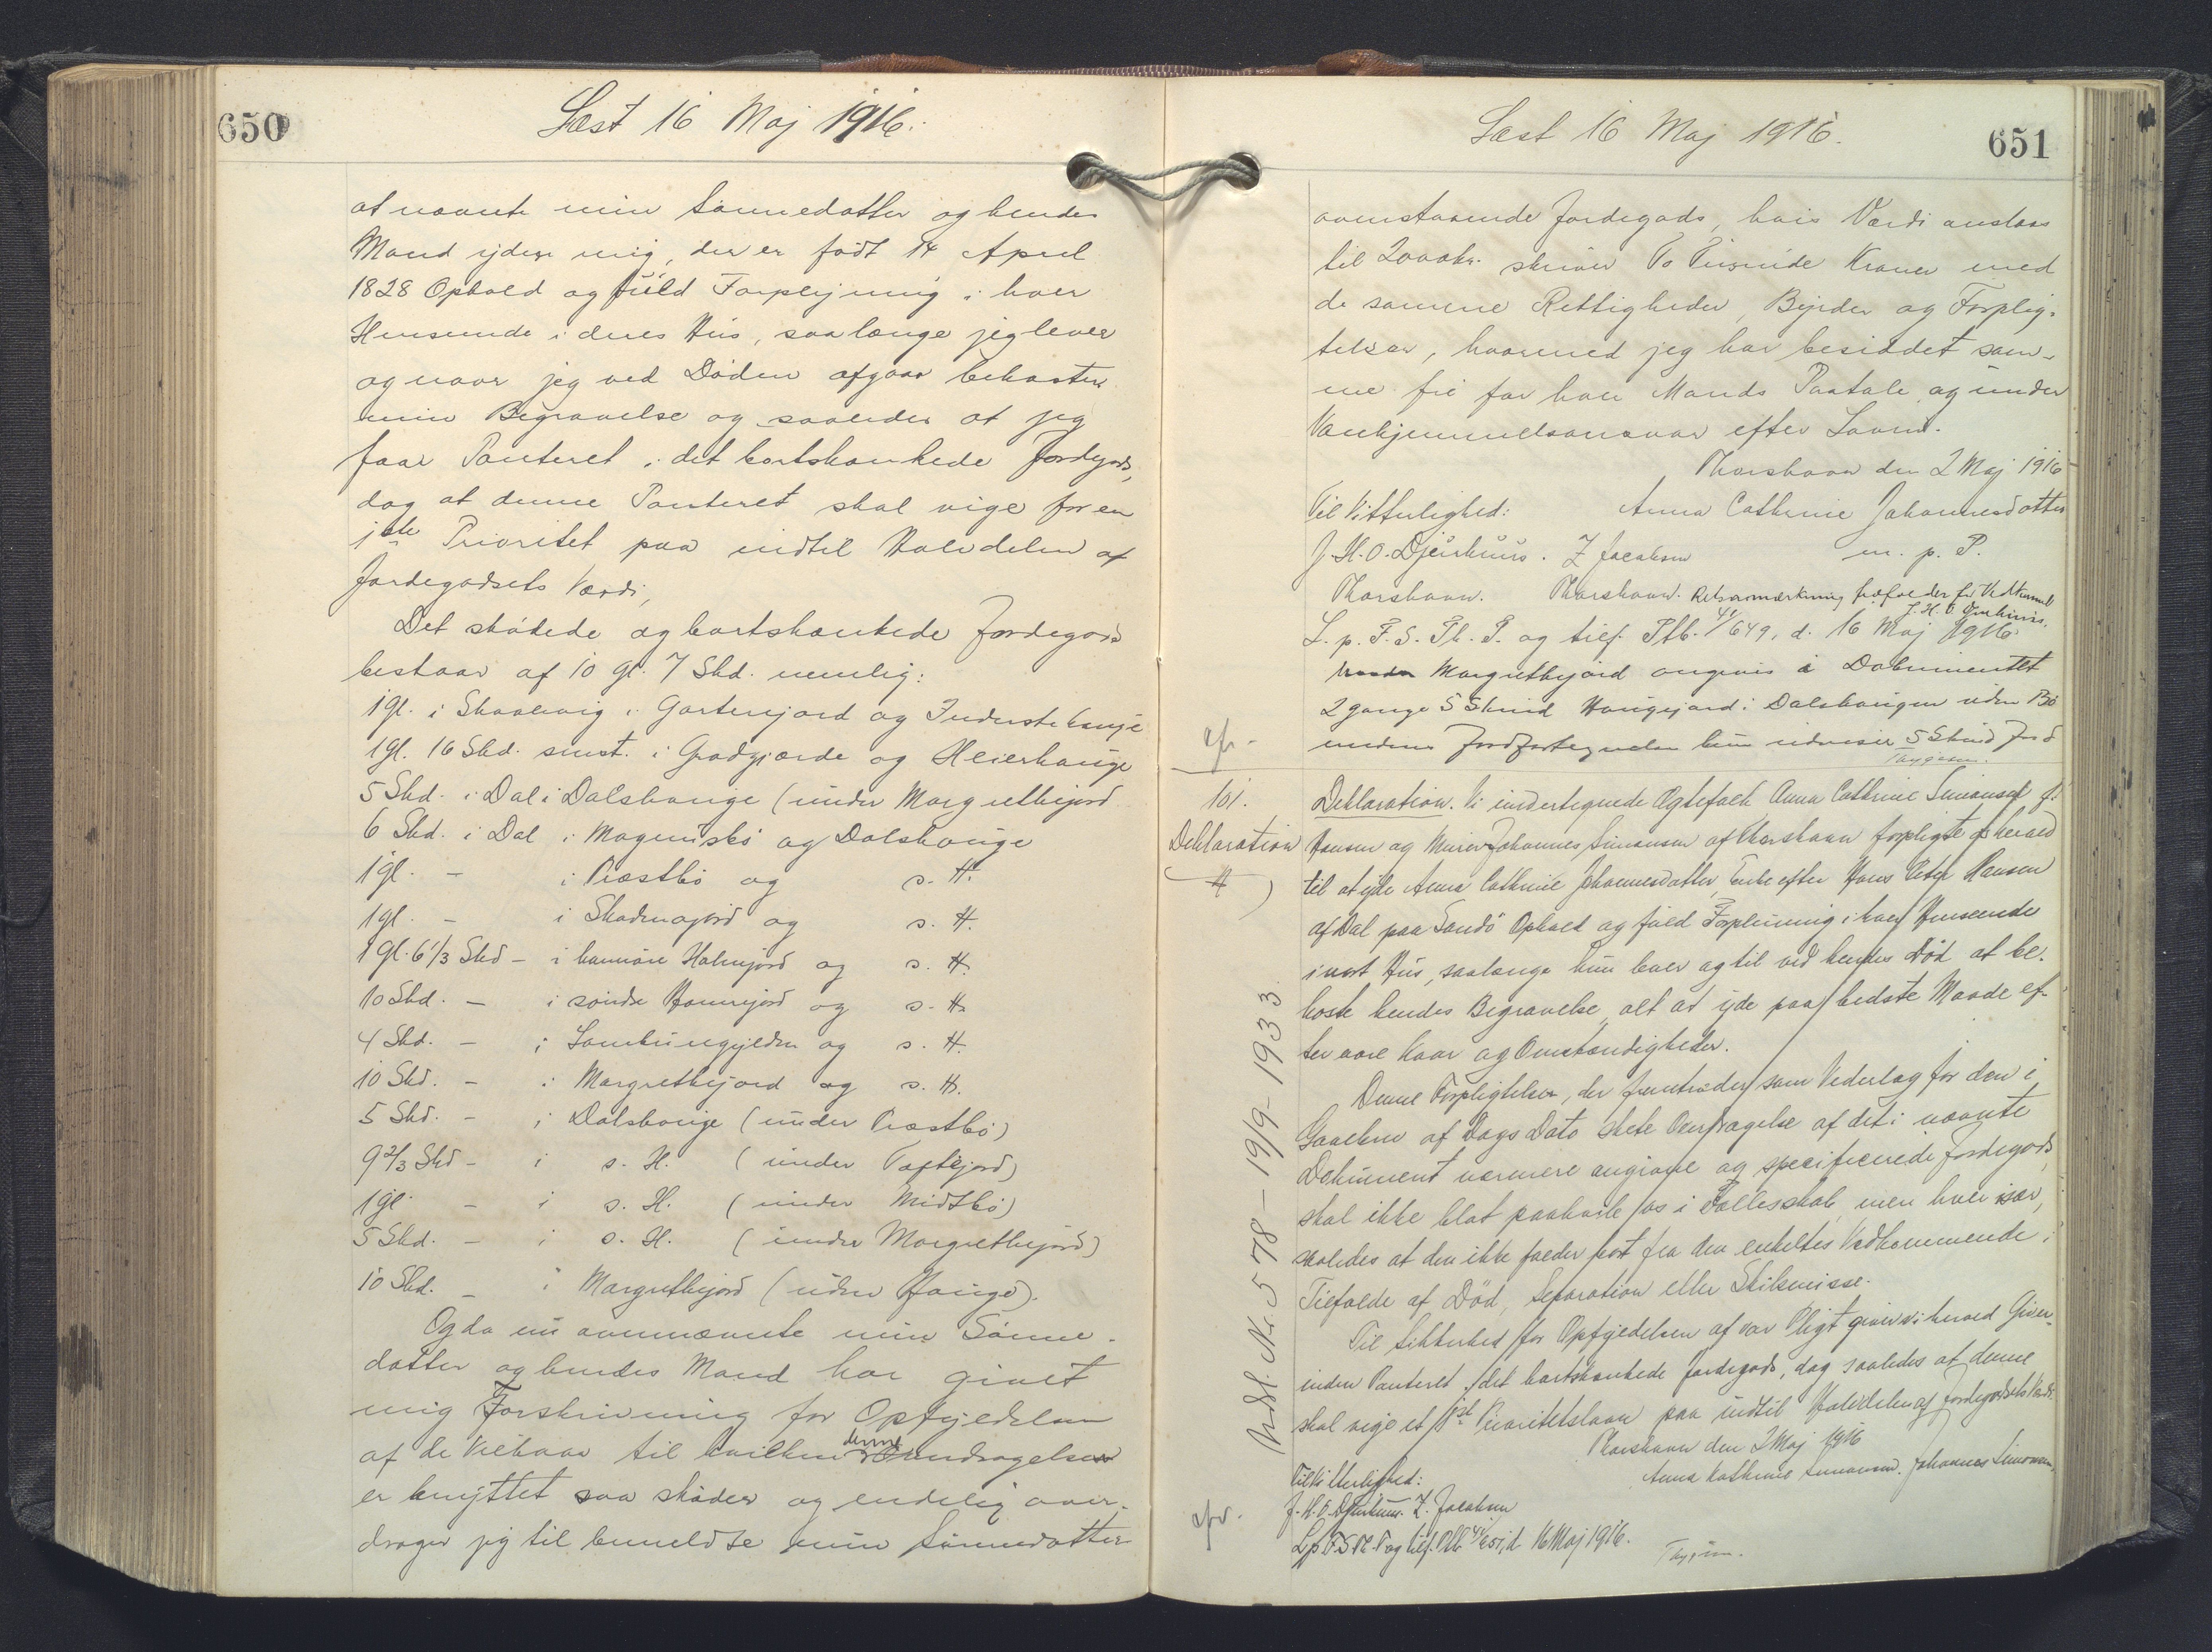 650
Læst 16 Maj 1916.
at nævnte min Sønnedatter og hendes
Mand yder mig, der er født 14 April
1828 Ophold og füld Forplejning i hver
Henseende i deres Hus, saa længe jeg lever
og naar jeg ved Døden afgaar bekoster
min Begravelse og saaledes at jeg
faar Panteret i det bortskænkede Jordegods,
dog at denne Panteret skal vige for en
1ste Prioritet paa indtil Halvdelen af
Jordegodsets Værdi,
Det skødede og bortskænkede Jordegods
bestaar af 10 gl. 7 Skd. nemlig:
1 gl. i Skaalevig i Gartnerjord og Inderste Hauge
1 gl. 16 Skd. smst. i Gradgjærde og Heierhauge
5 Skd. i Dal i Dalshauge (under Margrethejord
6 Skd. i Dal i Magnusbø og Dalshauge
1 gl. - i Præstbø og s. H.
1 gl. - i Skadmajord og s. H.
1 gl. 6 1/3 Skd - i Hannäre Halnjord og s. H.
10 Skd. - i søndre Hamrejord og s. H.
4 Skd. - i Lambüngjelden og s. H.
10 Skd. - i Margrethejord og s. H.
5 Skd. - i Dalshauge (under Præstbø)
9 2/3 Skd - i s. H. (under Toftejord)
1 gl - i s. H. (under Midtbø)
5 Skd. - i s. H. (under Margrethejord)
10 Skd. - i Margrethejord (uden Hauge).
Og da nu ovennævnte min Sønne-
datter og hendes Mand har givet
mig Forskrivning for Opfyldelsen
af de Vilkaar til hvilken denne Overdragelse
er knyttet saa skøder og endelig over-
drager jeg til bemeldte min Sønnedatter
Læst 16 Maj 1916.
651
ovenstaaende Jordegods, hvis Værdi anslaas
til 2000 Kr. skriver To Tusinde Kroner med
de samme Rettigheder, Byrder og Forplig-
telser, hvormed jeg har besiddet sam-
me fri for hver Mands Paatale og under
Vanhjemmelsansvar efter Loven.
Thorshavn den 2 Maj 1916
Til Vitterlighed: Anna Cathrine Johannesdatter
J. H. O. Djurhuus. Z Jacobsen m. p. P.
Thorshavn. Thorshavn. Retsanmærkning frafalder for Vedkomm
J. H. O. Djurhuus.
L. p. F. S. Th. P. og tilf. Ptb. 4/649, d. 16 Maj 1916.
Margrethejord angives i Dokumentet
2 gange 5 Skind Haugejord i Dalshaugen uden Bø
medens Jordfortegnelsen kun udviser 5 Skind Jord
cfr-
101.
Deklaration
Deklaration. Vi undertegnede Ægtefolk Anna Cathrine Simonsen f.
Hansen og Murer Johannes Simonsen af Thorshavn forpligte os herved
til at yde Anna Cathrine Johannesdatter, Enke efter Hans Peter Hansen
af Dal paa Sandø Ophold og fuld Forpleining i hver Henseende
i vort Hus, saalænge hun lever og til ved hendes Død at be-
koste hendes Begravelse, alt at yde paa bedste Maade ef-
ter vore Kaar og Omstændigheder.
Denne Forpligtelse, der fremtræder som Vederlag for den i
Gavebrev af Dags Dato skete Overdragelse af det i nævnte
Dokument nærmere angivne og specificerede Jordegods,
skal ikke blot paahvile os i Fællesskab, men hver især,
saaledes at den ikke falder bort fra den enkeltes Vedkommende i
Tilfælde af Død, Separation eller Skilsmisse.
Til Sikkerhed for Opfyldelsen af vor Pligt giver vi herved Giver-
inden Panteret i det bortskænkede Jordegods, dog saaledes at denne
skal vige et 1ste Prioritetslaan paa indtil Halvdelen af Jordegodsets Værdi.
Thorshavn den 2 Maj 1916
Anna Kathrine Simonsen. Johannes Simonsen.
Til Vitterlighed:
J. H. O. Djurhuus. Z. Jacobsen
cfr.
L. p. F. S. Th. P. og tilf. Ptb. 4/651, d. 16 Maj 1916.
Udsl. Nr. 578 - 19/9-1933